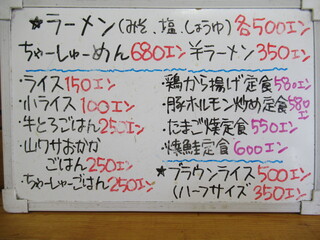 ★ラーメン(みそ、塩、しょうゆ)各500エン
ちゃーしゅーめん 680エン 半ラーメン 350エン
・ライス150エン
・小ライス100エン
・牛とろごはん250エン
・山ワサおかか
ごはん250エン
・ちゃーしゅーごはん250エン
・鶏から揚げ定食580エン
・豚ホルモン炒め定食580エン
・たまご焼定食550エン
・焼鮭定食600エン
★ブラウンライス500エン
(ハーフサイズ350エン)